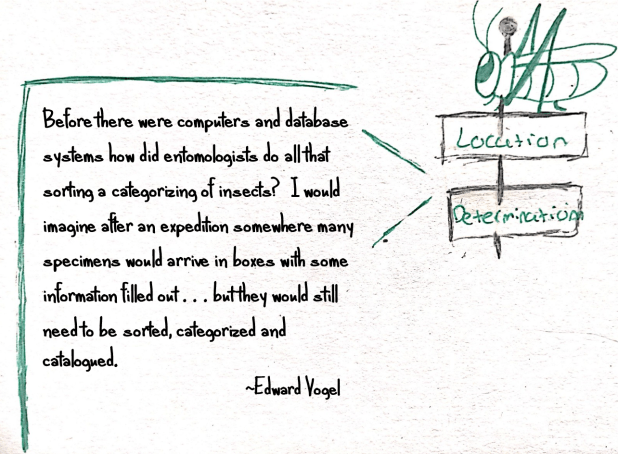 Before there were computers and database
systems how did entomologists do all that
sorting a categorizing of insects? I would
imagine after an expedition somewhere many
specimens would arrive in boxes with some
information filled out . . . but they would still
need to be sorted, categorized and
catalogued.
~Edward Vogel
Location
Determination